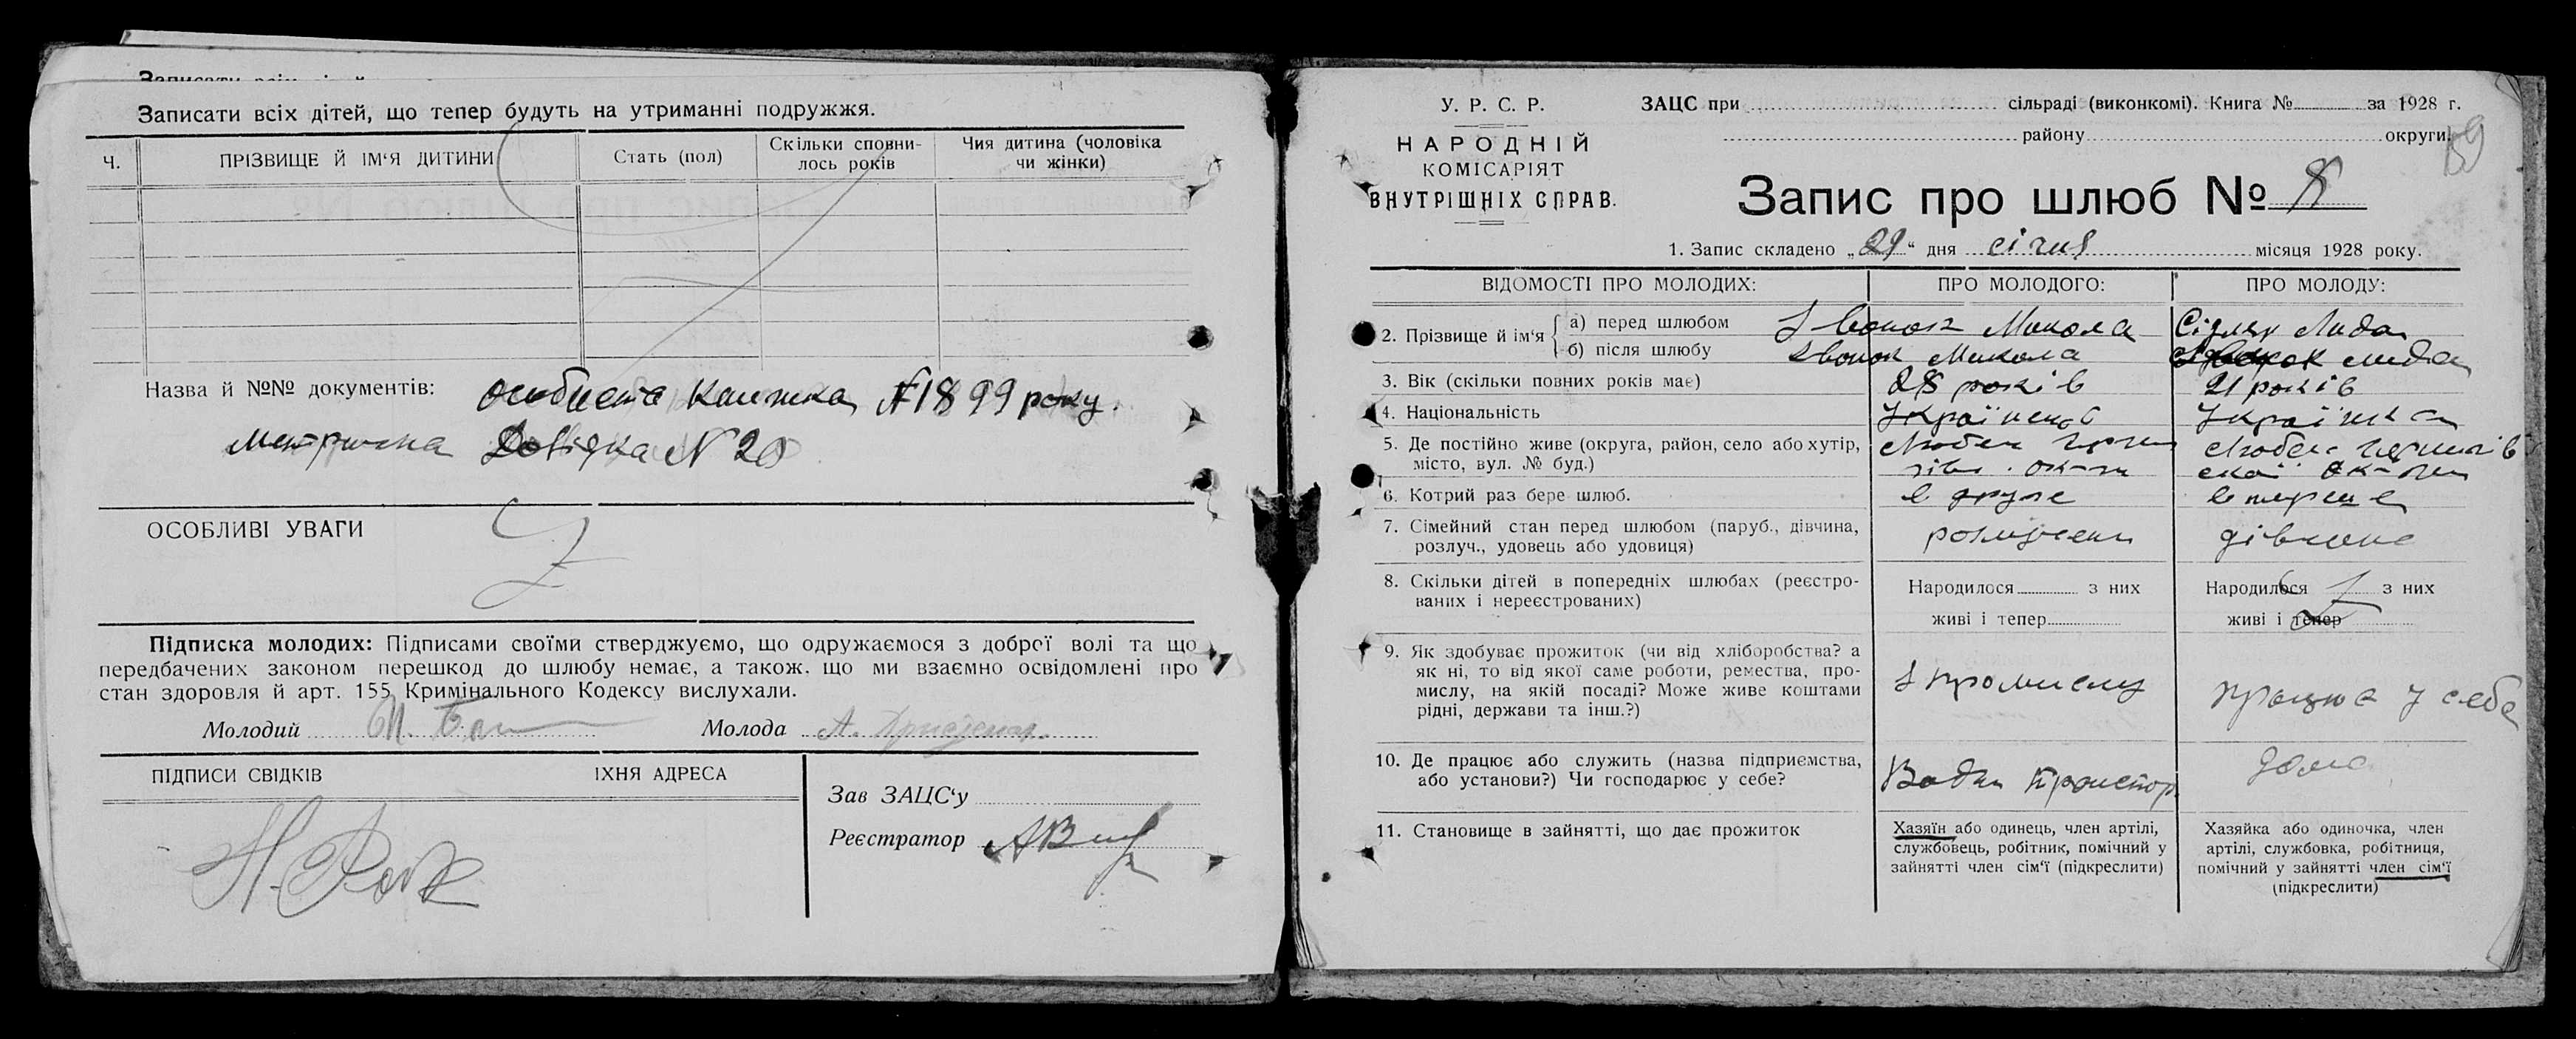 Записати всіх дітей, що тепер будуть на утриманні подружжя.
Ч. ПРІЗВИЩЕ Й ІМ'Я ДИТИНИ Стать (пол) Скільки сповни-лось років Чия дитина (чоловіка чи жінки)
Назва й №№ документів: Особиста книжка № 1899 року.
Метрична Довідка № 20
ОСОБЛИВІ УВАГИ
Підписка молодих: Підписами своїми стверджуємо, що одружаємося з доброї волі та що
передбачених законом перешкод до шлюбу немає, а також, що ми взаємно освідомлені про
стан здоров'я й арт. 155 Кримінального Кодексу вислухали.
Молодий Молода
ПІДПИСИ СВІДКІВ ЇХНЯ АДРЕСА
Зав ЗАЦС'у
Реєстратор
У. Р. С. Р.
НАРОДНІЙ
КОМІСАРІЯТ
ВНУТРІШНІХ СПРАВ.
ЗАЦС при сільраді (виконкомі). Книга № за 1928 г.
району округи.
59
Запис про шлюб № 8
1. Запис складено „29" дня січня місяця 1928 року.
ВІДОМОСТІ ПРО МОЛОДИХ: ПРО МОЛОДОГО: ПРО МОЛОДУ:
2. Прізвище й ім'я
а) перед шлюбом Микола Лида
б) після шлюбу Микола Лида
3. Вік (скільки повних років має) 28 років 21 років
4. Національність Українець Українка
5. Де постійно живе (округа, район, село або хутір,
місто, вул. № буд.) Любеч Любеч
6. Котрий раз бере шлюб. в друге в перше
7. Сімейний стан перед шлюбом (паруб., дівчина,
розлуч., удовець або удовиця) розлучений дівчина
8. Скільки дітей в попередніх шлюбах (реєстро-
ваних і нереєстрованих)
Народилося з них
живі і тепер
Народилося з них
живі і тепер
9. Як здобуває прожиток (чи від хліборобства? а
як ні, то від якої саме роботи, ремества, про-
мислу, на якій посаді? Може живе коштами
рідні, держави та інш.?)
з промислу
працює у себе
10. Де працює або служить (назва підприємства,
або установи?) Чи господарює у себе?
дома
11. Становище в зайнятті, що дає прожиток
Хазяїн або одинець, член артілі,
службовець, робітник, помічний у
зайнятті член сім'ї (підкреслити)
Хазяйка або одиночка, член
артілі, службовка, робітниця,
помічний у зайнятті член сім'ї
(підкреслити)